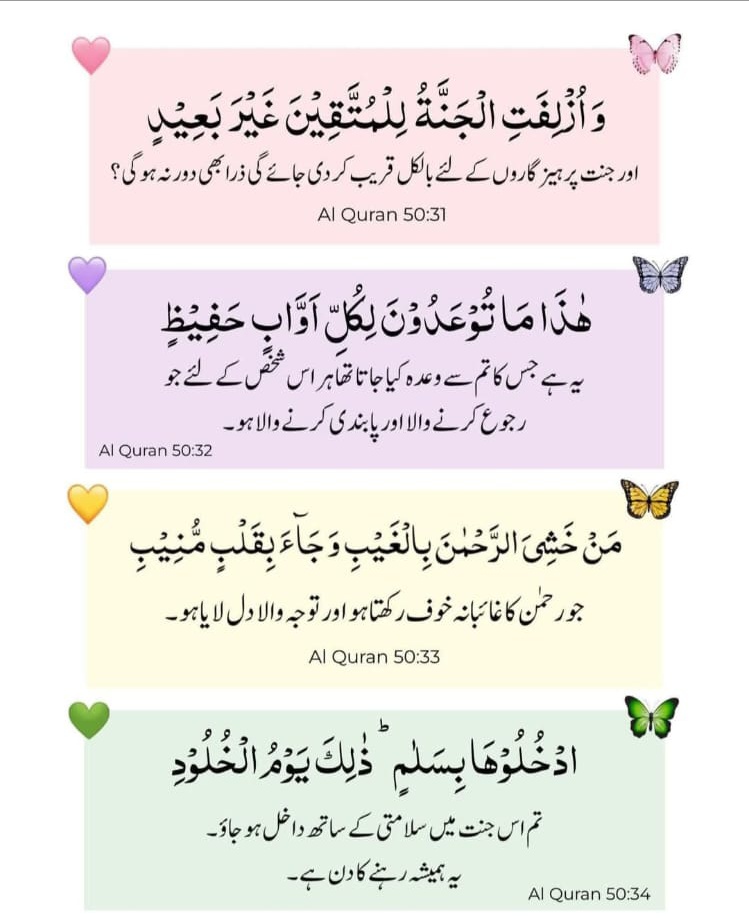 وَاُزْلِفَتِ الْجَنَّةُ لِلْمُتَّقِيْنَ غَيْرَ بَعِيْدٍ
اور جنت پرہیزگاروں کے لئے بالکل قریب کر دی جائے گی ذرا بھی دور نہ ہوگی؟
Al Quran 50:31
هٰذَا مَا تُوْعَدُوْنَ لِكُلِّ اَوَّابٍ حَفِيْظٍ
یہ ہے جس کا تم سے وعدہ کیا جاتا تھا ہر اس شخص کے لئے جو
رجوع کرنے والا اور پابندی کرنے والا ہو۔
Al Quran 50:32
مَنْ خَشِىَ الرَّحْمٰنَ بِالْغَيْبِ وَجَآءَ بِقَلْبٍ مُّنِيْبٍ
جو رحمٰن کا غائبانہ خوف رکھتا ہو اور توجہ والا دل لایا ہو۔
Al Quran 50:33
ادْخُلُوْهَا بِسَلٰمٍ ؕ ذٰلِكَ يَوْمُ الْخُلُوْدِ
تم اس جنت میں سلامتی کے ساتھ داخل ہو جاؤ۔
یہ ہمیشہ رہنے کا دن ہے۔
Al Quran 50:34